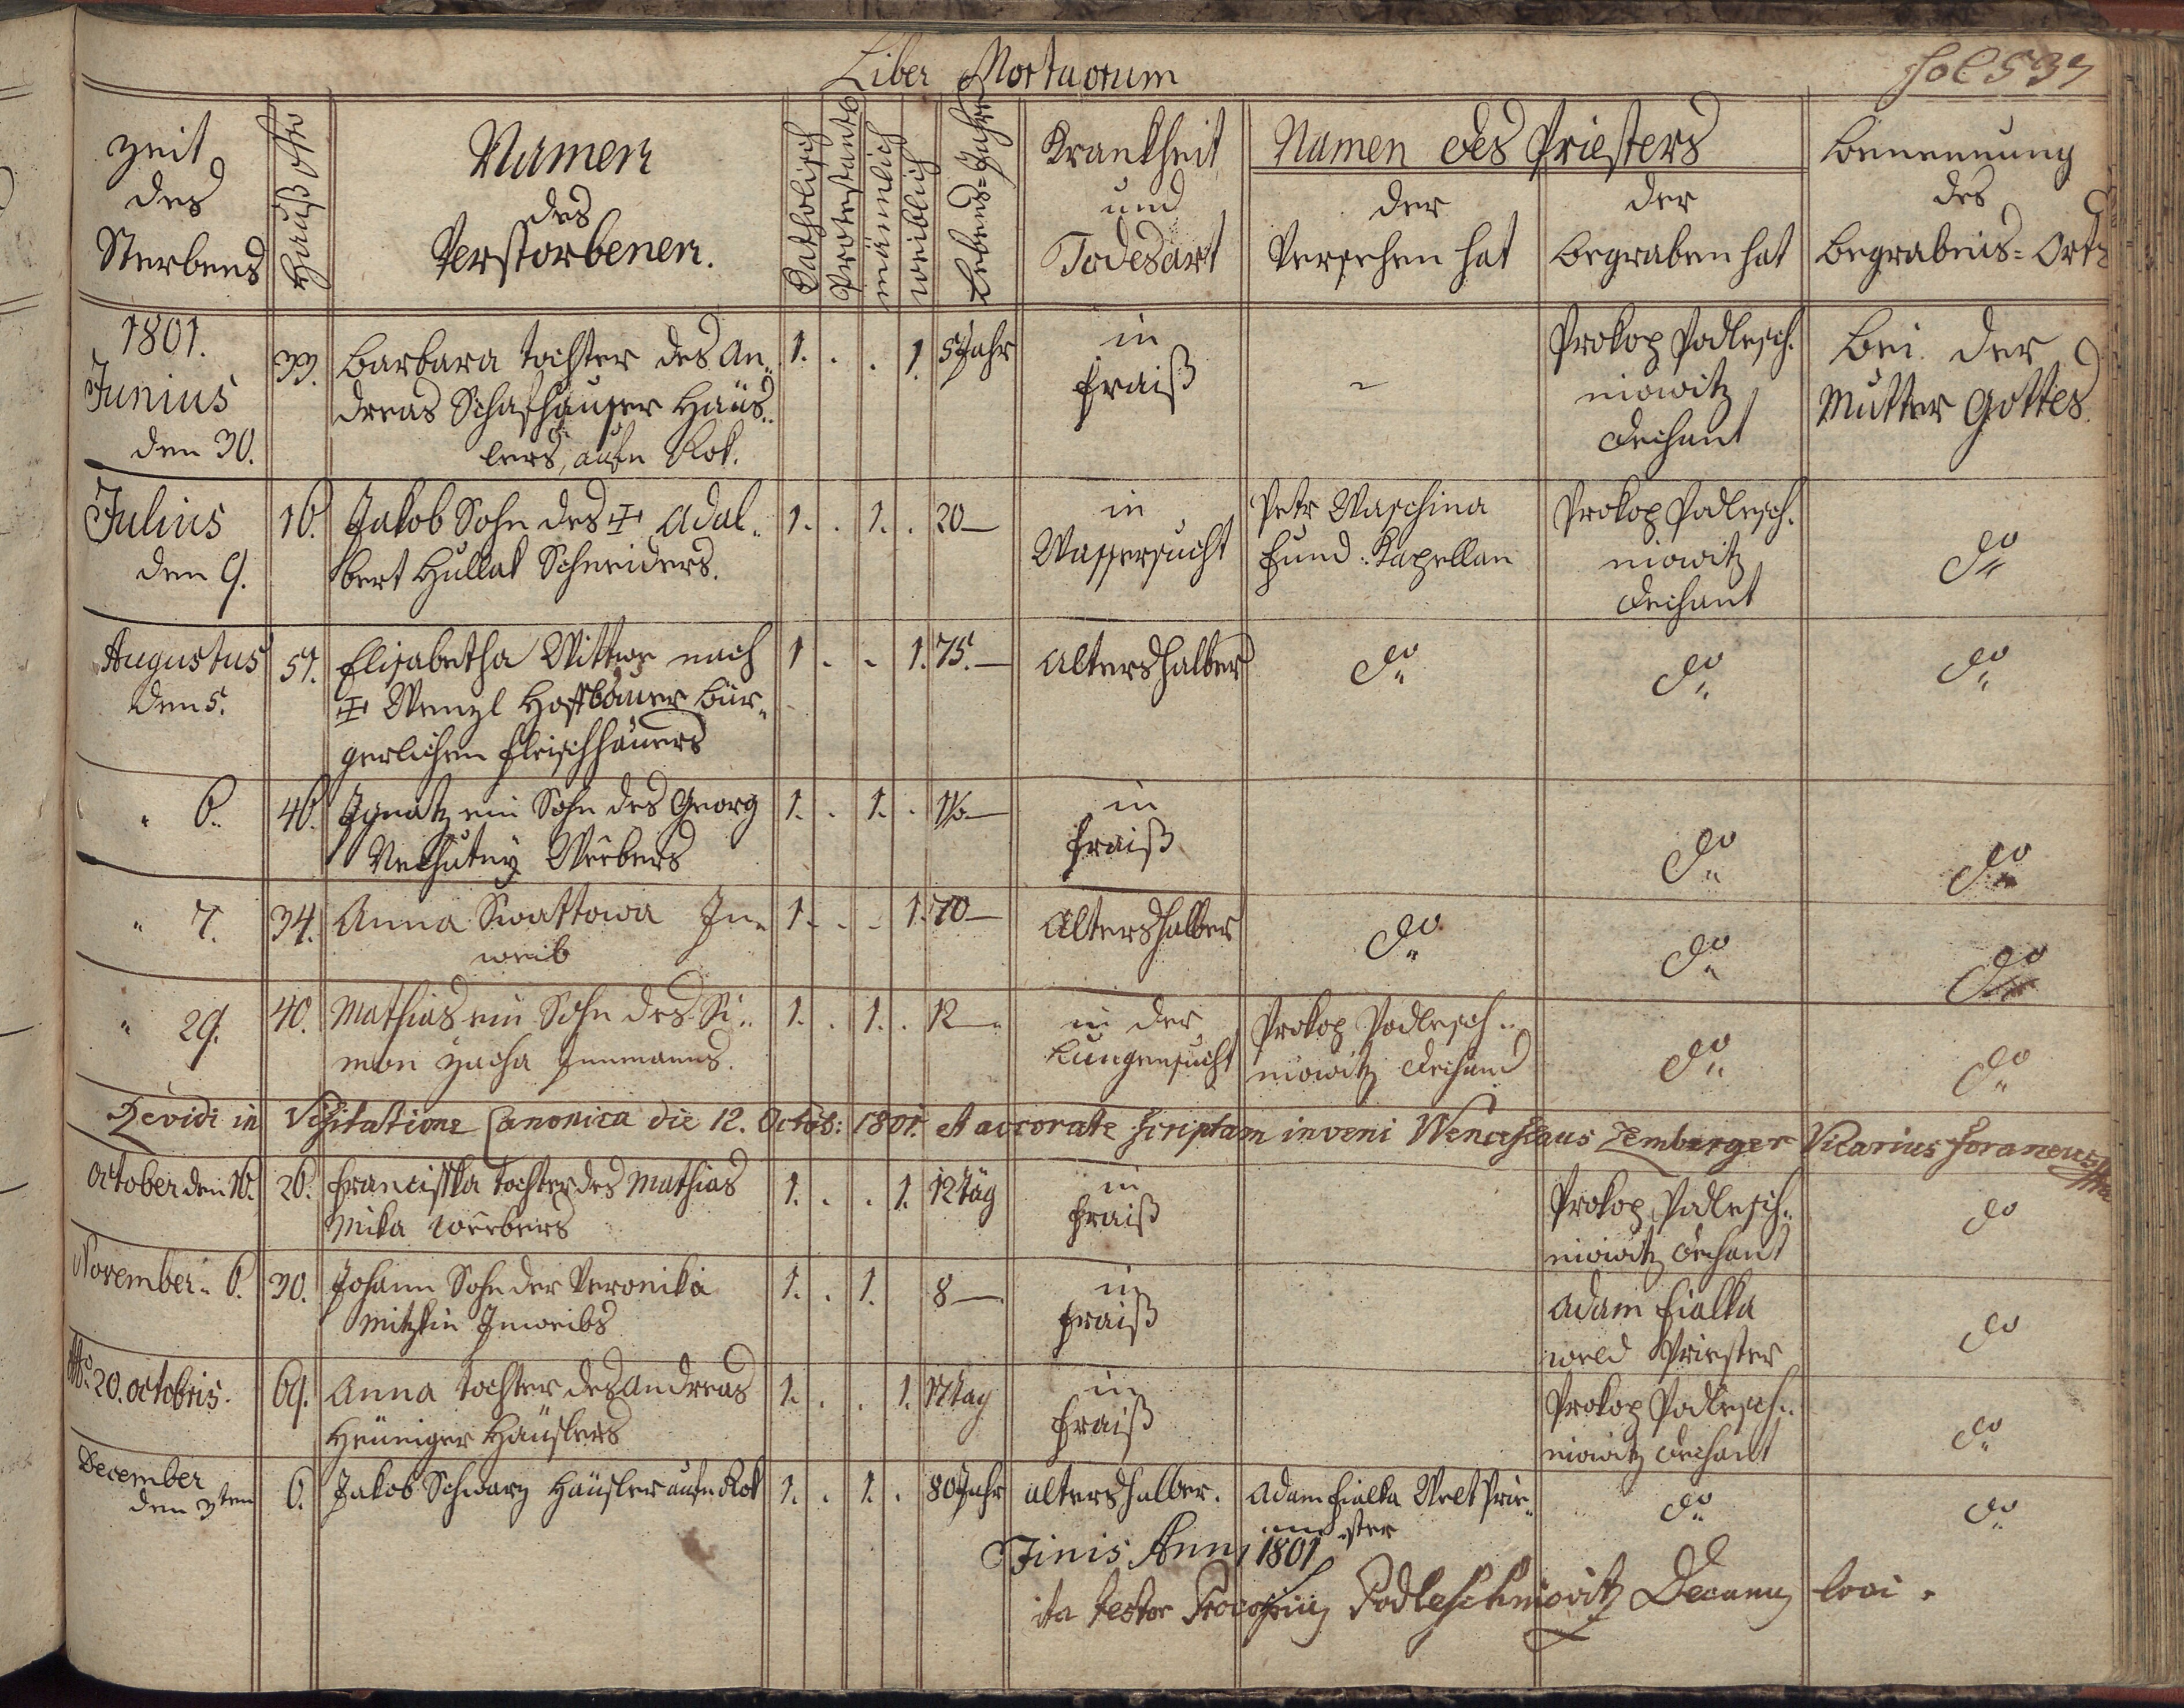 Liber Mortuorum
fol 537
Zeit des Sterbens
Hauß Nro
Namen des Verstorbenen.
Katholisch
Protestantis
mänlich
weiblich
Lebens=Jahre
Krankheit und Todesart
Namen des Priesters
der Versehen hat
der Begraben hat
Benennung des Begrabnis=Orts
1801.
Junius
den 30.
33.
Barbara tochter des An„
dreas Schafhauser Häus„
lers, aufn Rok.
1. . . 1.
5 Jahr
in
Fraiß
Prokop Podlesch.
niowitz
Dechant
Bei der
Mutter Gottes.
Julius
den 9.
16.
Jakob Sohn des ✠ Adal„
bert Hullak Schneiders.
1. . 1. .
20—
in
Wassersucht
Petr Waschina
Fund. Kapellan
Prokop Podlesch.
niowitz
Dechant
do
Augustus
den 5.
57.
Elisabetha Wittwe nach
✠ Wenzl Hoffbauer Bür„
gerlichen Fleischhauers
1 . . 1.
75.—
Altershalber
do
do
do
„ 6.
46.
Ignatz ein Sohn des Georg
Nechutny Webers
1. . 1. .
in
Fraiß
do
do
„ 7.
34.
Anna Swattowa In„
weib
1. . . 1.
70—
Altershalber
do
do
do
„ 29.
40.
Mathias ein Sohn des Si„
mon Zacha Innmanns.
1. . 1. .
12—
in der
Lungensucht
Prokop Podlesch„
niowitz Dechand
do
do
Revidi in Visitatione Canonica die 12. Octob: 1801. et accorate scriptam inveni Wenceslaus Lemberger Vicarius foraneus
October den 16.
26.
Francisska tochter des Mathias
Mika Webers
1. . . 1.
12 täg
in
Fraiß
Prokop Podlesch„
niowitz Dechant
do
November „ 6.
30.
Johann Sohn der Veronika
Mitzkin Inweibs
1. . 1.
8—
in
Fraiß
Adam Fialka
weld Priester
do
20. octobris.
69.
Anna tochter des Andreas
Heüniger Häuslers
1. . . 1.
17 tag
in
Fraiß
Prokop Podlesch„
niowitz Dechant
do
December
den 3ten
6.
Jakob Schwarz Häusler aufn Rok
1. . 1. .
80 Jahr
altershalber.
Adam Fialka Welt Prie„
ster
do
do
Finis Anni 1801
ita testor Procopius Podleschniovitz Decanus loci.